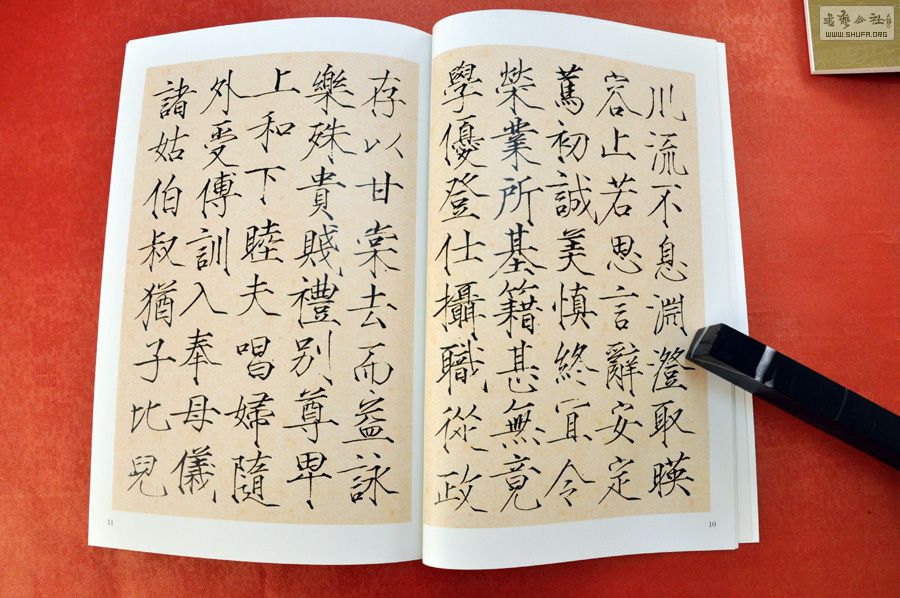 川流不息淵澄取暎
容止若思言辭安定
篤初誠美慎終宜令
榮業所基籍甚無竟
學優登仕攝職從政
10
存以甘棠去而益詠
樂殊貴賤禮別尊卑
上和下睦夫唱婦隨
外受傅訓入奉母儀
諸姑伯叔猶子比兒
11
WWW.SHUFA.ORG